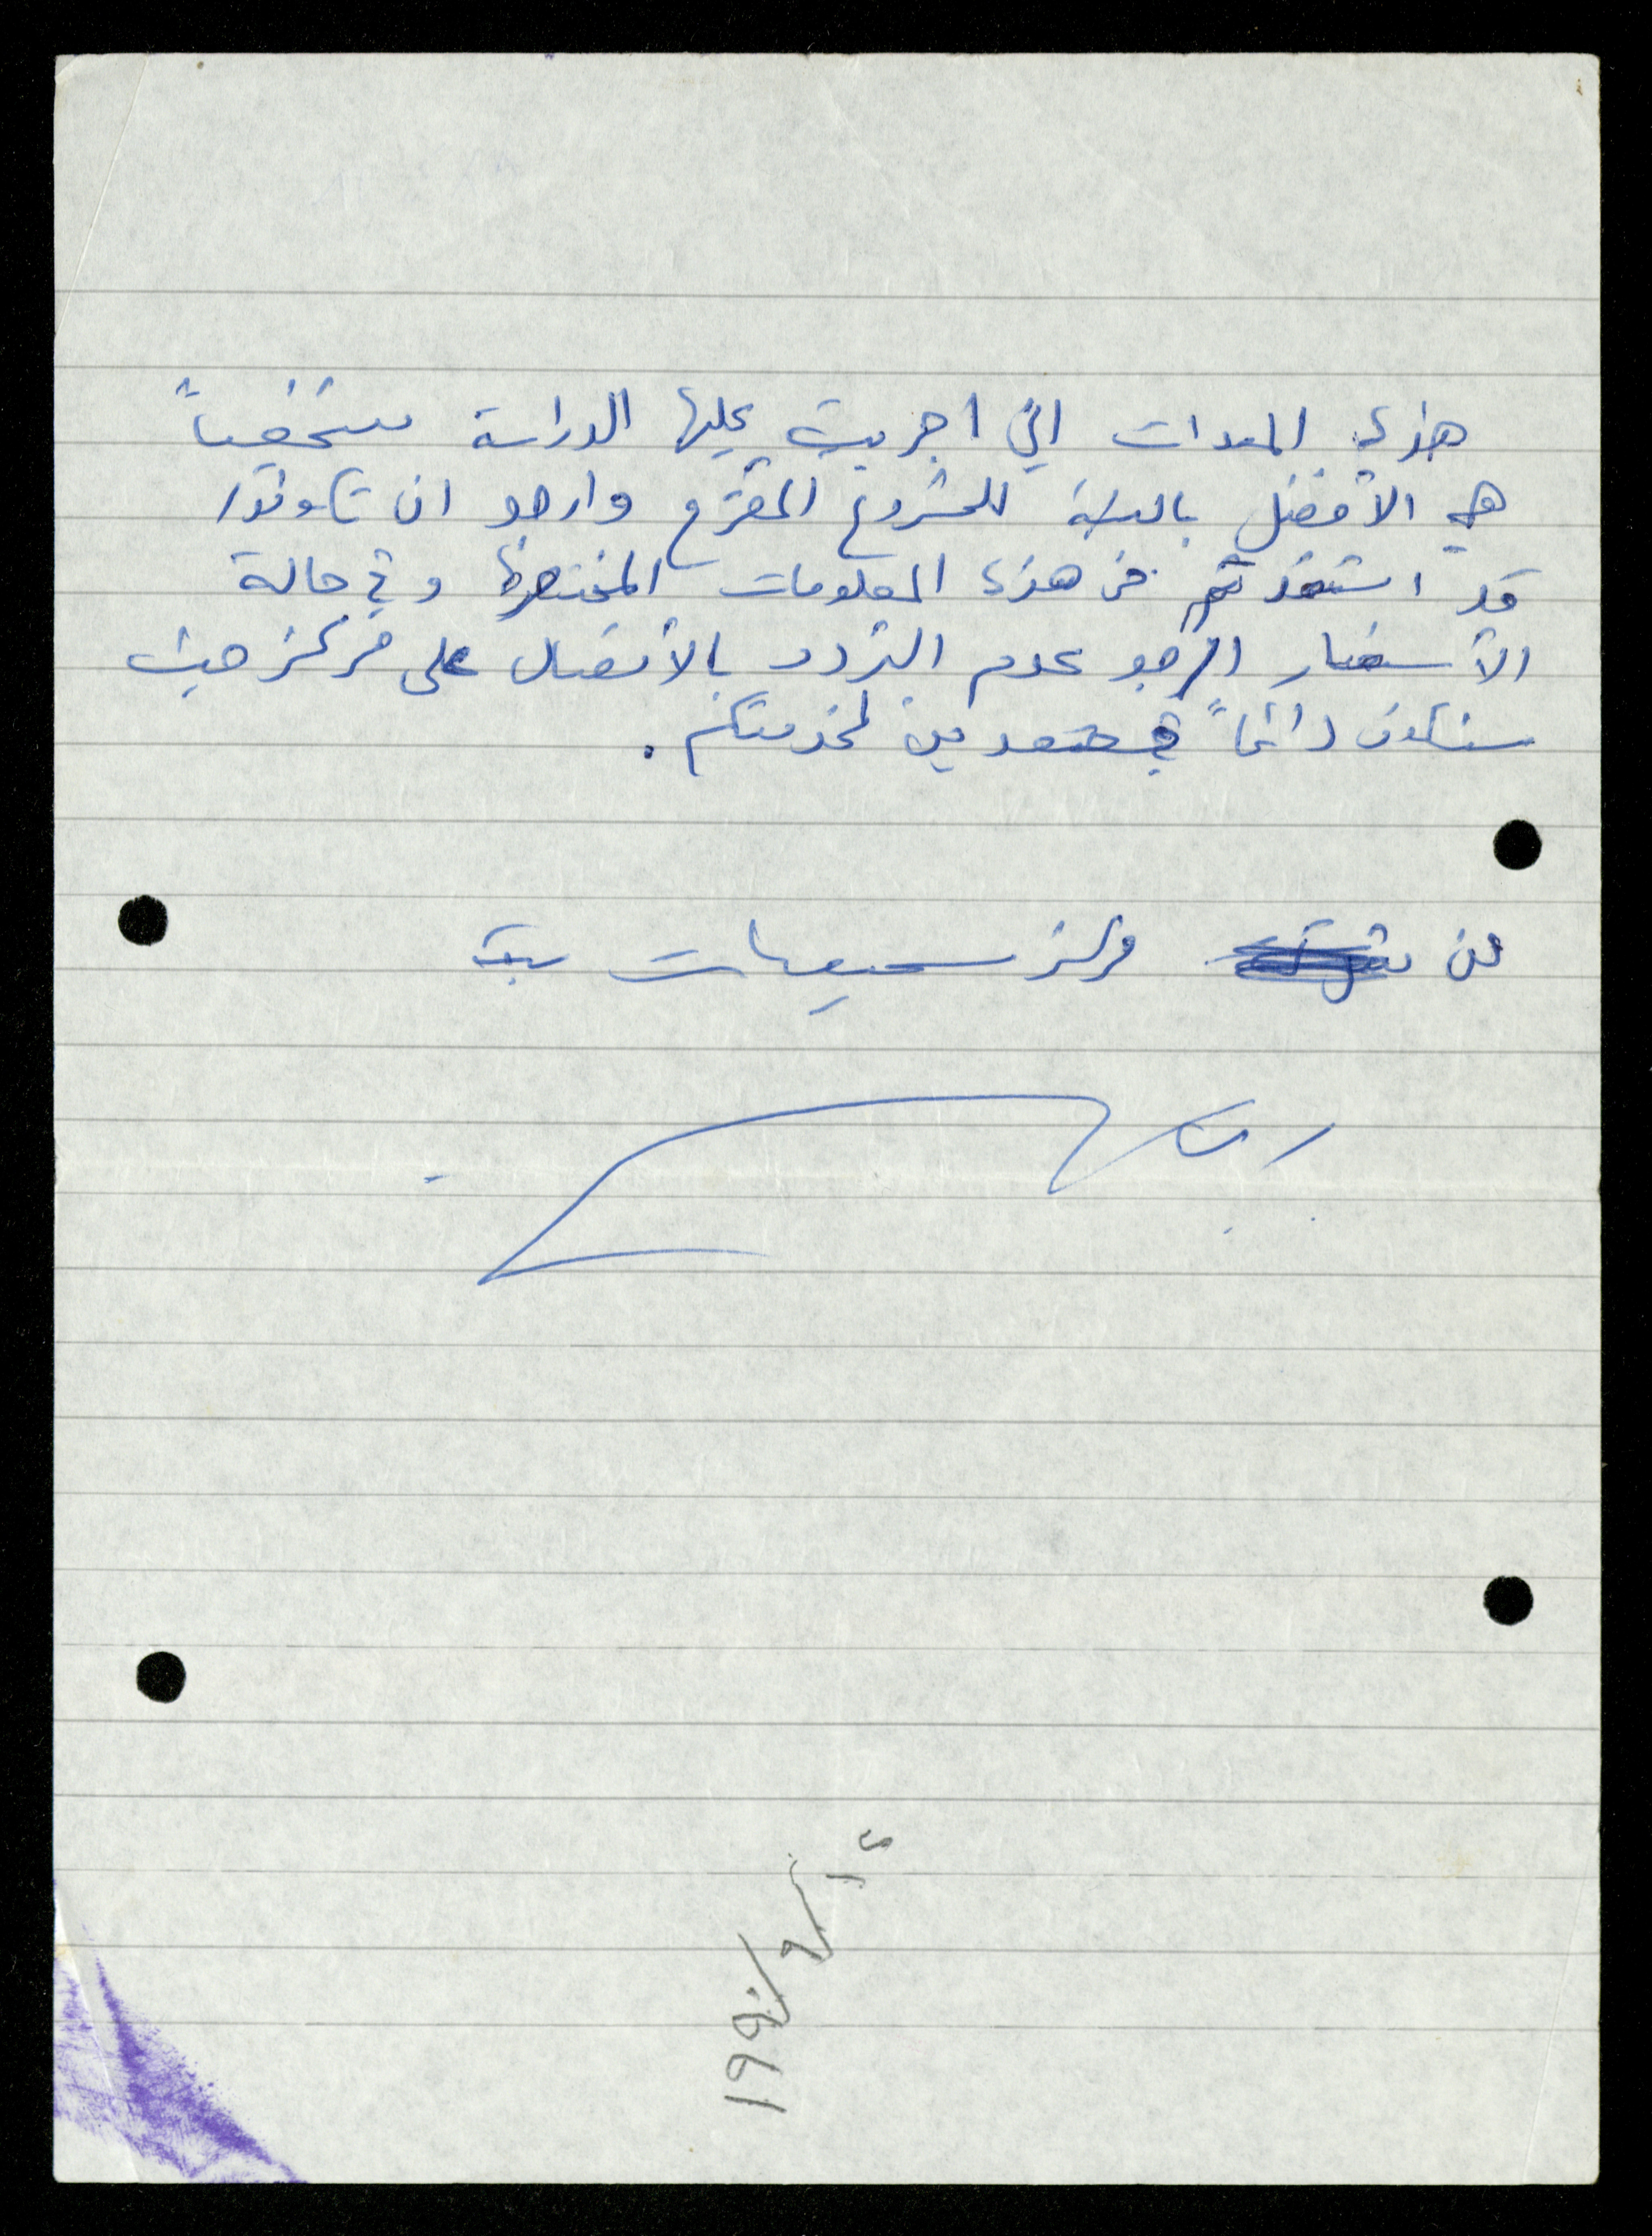 هذه المعدات التي اجريت عليها الدراسة شخصياً
هي الأفضل بالنسبة للمشروع المقترح وارجو ان تكونوا
قد استفدتم من هذه المعلومات المختصرة وفي حالة
الأستفسار ارجو عدم التردد بالأتصال على مركز حيث
سنكون دائماً مستعدين لخدمتكم.
عن مركز سمعيات